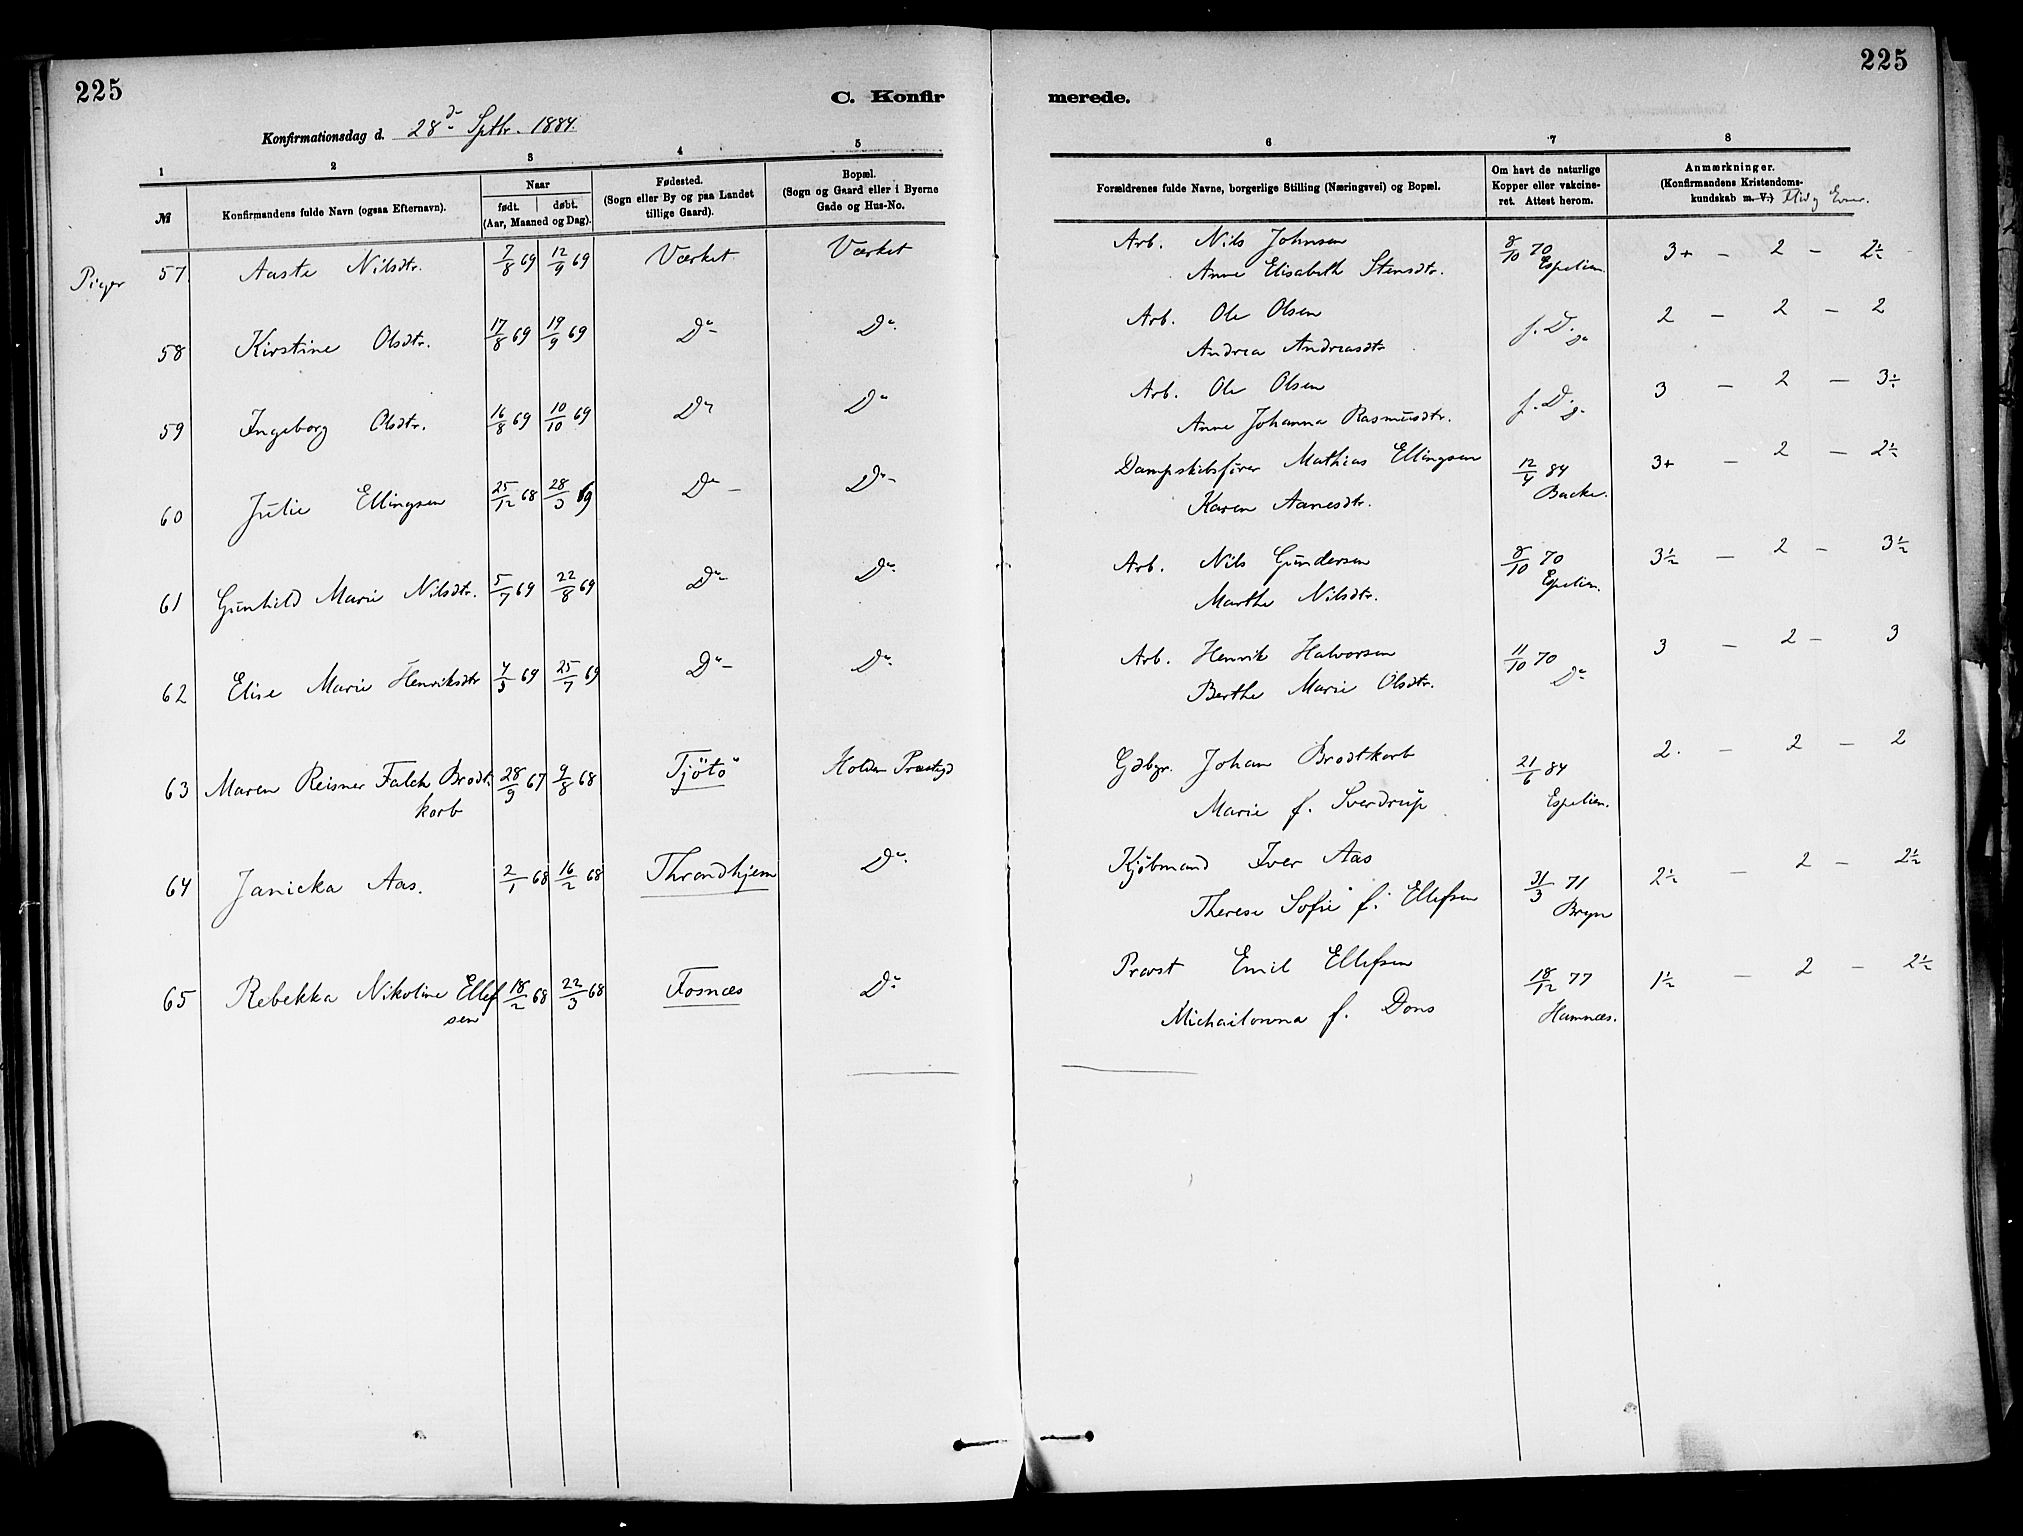 225
C. Konfirmerede.
225
Konfirmationsdag d. 28d Sptbr. 1884
1 2 3 4 5 6 7 8
№
Konfirmandens fulde Navn (ogsaa Efternavn).
Naar
født. døbt.
(Aar, Maaned og Dag).
Fødested.
(Sogn eller By og paa Landet
tillige Gaard).
Bopæl.
(Sogn og Gaard eller i Byerne
Gade og Hus-No.
Forældrenes fulde Navne, borgerlige Stilling (Næringsvei) og Bopæl.
Om havt de naturlige
Kopper eller vakcine-
ret. Attest herom.
Anmærkninger.
(Konfirmandens Kristendoms-
kundskab m. V.) Flid og Evner.
Piger 57 Aaste Nilsdtr. 7/8 69 12/9 69 Værket Værket Arb. Nils Johnsen 8/10 70 3+ – 2 – 2½
Anne Elisabeth Stensdtr. Espelien.
58 Kirstine Olsdtr. 17/8 69 19/9 69 Do Do Arb. Ole Olsen f. D. do 2 – 2 – 2
Andrea Andreasdtr
59 Ingeborg Olsdtr. 16/8 69 10/10 69 Do Do Arb. Ole Olsen f. D. do 3 – 2 – 3÷
Anne Johanna Rasmusdtr.
60 Julie Ellingsen 25/12 68 28/3 69 Do Do Dampskibsfører Mathias Ellingsen 12/4 84 3+ – 2 – 2½
Karen Aanesdtr. Backe.
61 Gunhild Marie Nilsdtr. 5/7 69 22/8 69 Do Do Arb. Nils Gundersen 8/10 70 3½ – 2 – 3½
Marthe Nilsdtr. Espelien.
62 Elise Marie Henriksdtr 4/3 69 25/7 69 Do Do Arb. Henrik Halvorsen 11/10 70 3 – 2 – 3
Berthe Marie Olsdtr. Do
63 Maren Reisner Falch Brodt- 28/9 67 9/8 68 Tjötö Holden Præstgd Gdbgr. Johan Brodtkorb 21/6 84 2. – 2 – 2
korb Marie f. Sverdrup Espelien.
64 Janicka Aas. 2/1 68 16/2 68 Throndhjem Do Kjøbmand Iver Aas 31/3 71 2½ – 2 – 2½
Therese Sofie f. Ellefsen Bryn
65 Rebekka Nikoline Ellef 18/2 68 22/3 68 Fosnæs Do Provst Emil Ellefsen 18/12 77 1½ – 2 – 2½
sen Michailonna f. Dons Hamnæs.